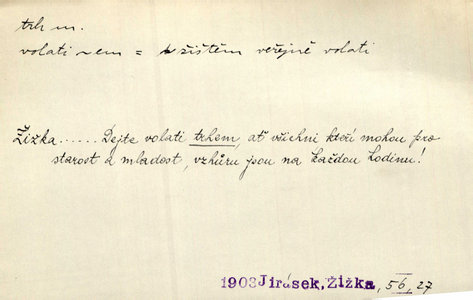 trh m.
volati ~em = tržištěm veřejně volati
Žižka...... Dejte volati trhem, ať všichni kteří mohou pro
starost a mladost, vzhůru jsou na každou hodinu!
1903 Jirásek, Žižka, 56, 27